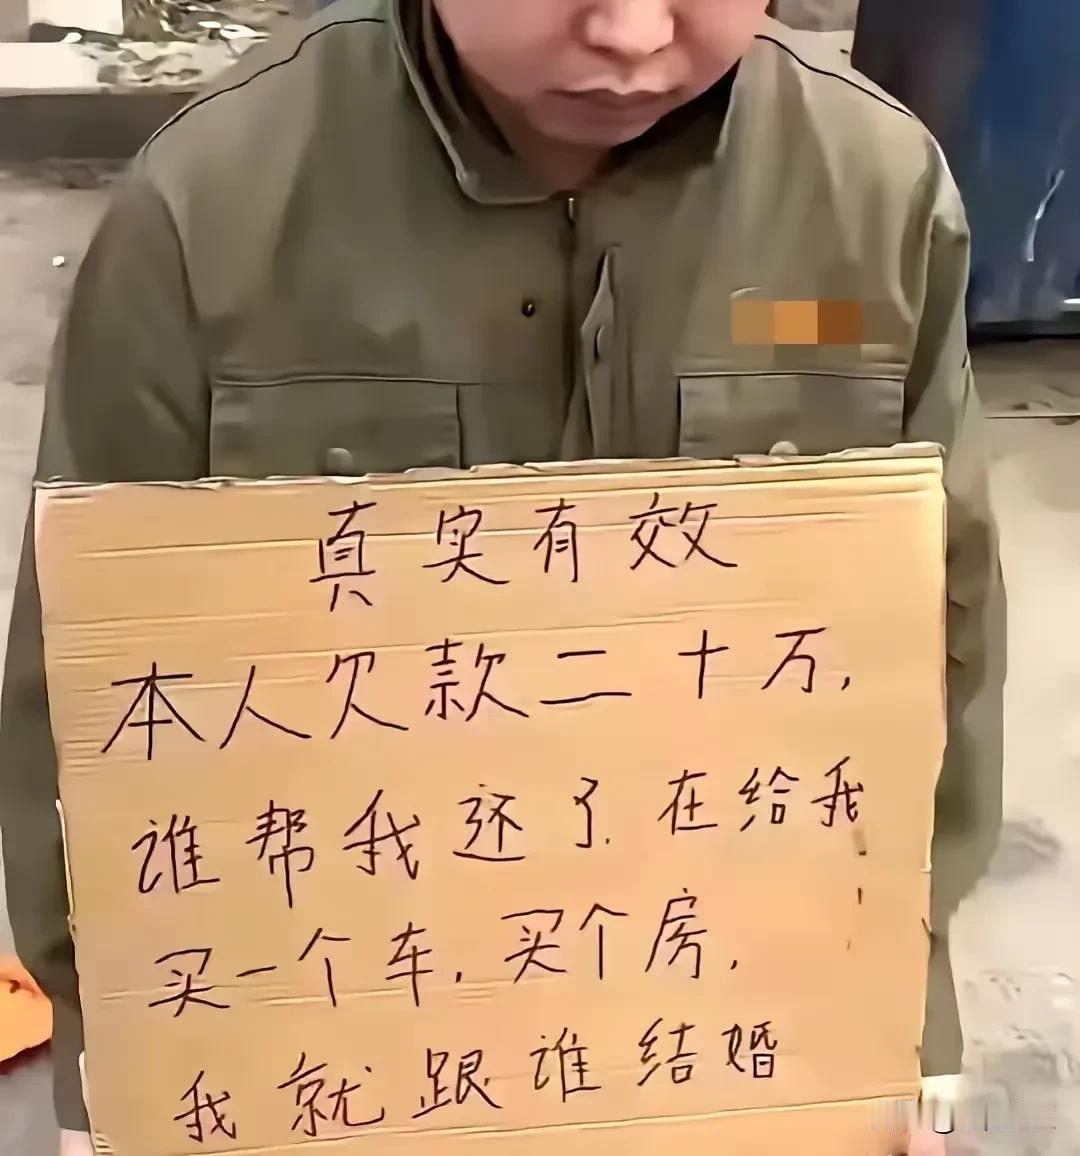 真实有效
本人欠款二十万,
谁帮我还了.在给我
买一个车,买个房,
我就跟谁结婚